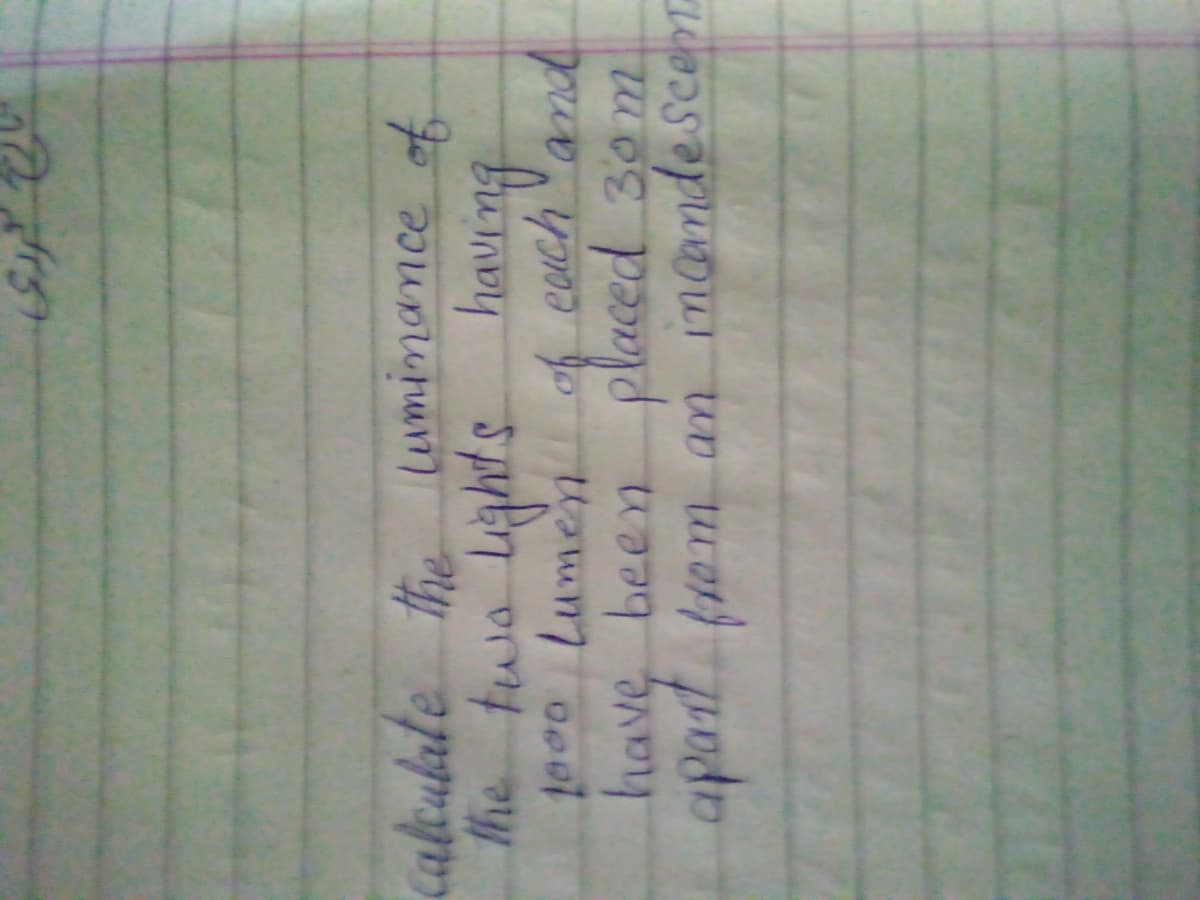 calculate the luminance of
the two Lights having
1000 Lumen of each and
have been placed 3.0m
apart from an incandescent